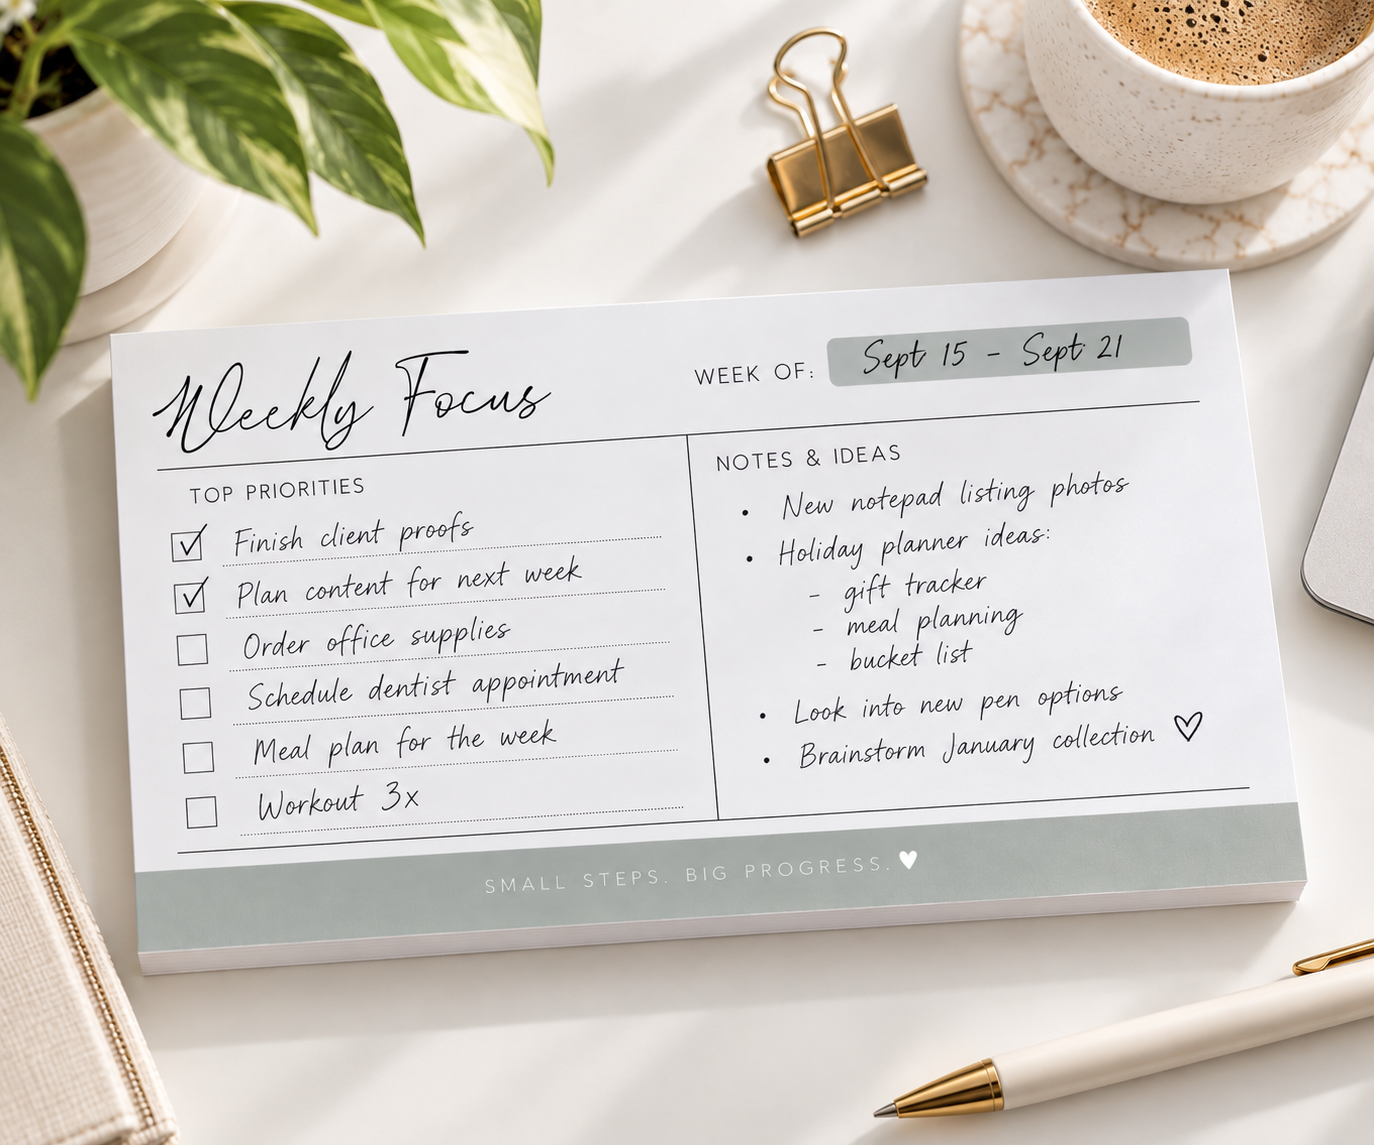 Weekly Focus
WEEK OF: Sept 15 - Sept 21
TOP PRIORITIES
Finish client proofs
Plan content for next week
Order office supplies
Schedule dentist appointment
Meal plan for the week
Workout 3x
NOTES & IDEAS
• New notepad listing photos
• Holiday planner ideas:
- gift tracker
- meal planning
- bucket list
• Look into new pen options
• Brainstorm January collection ♡
SMALL STEPS. BIG PROGRESS. ♥